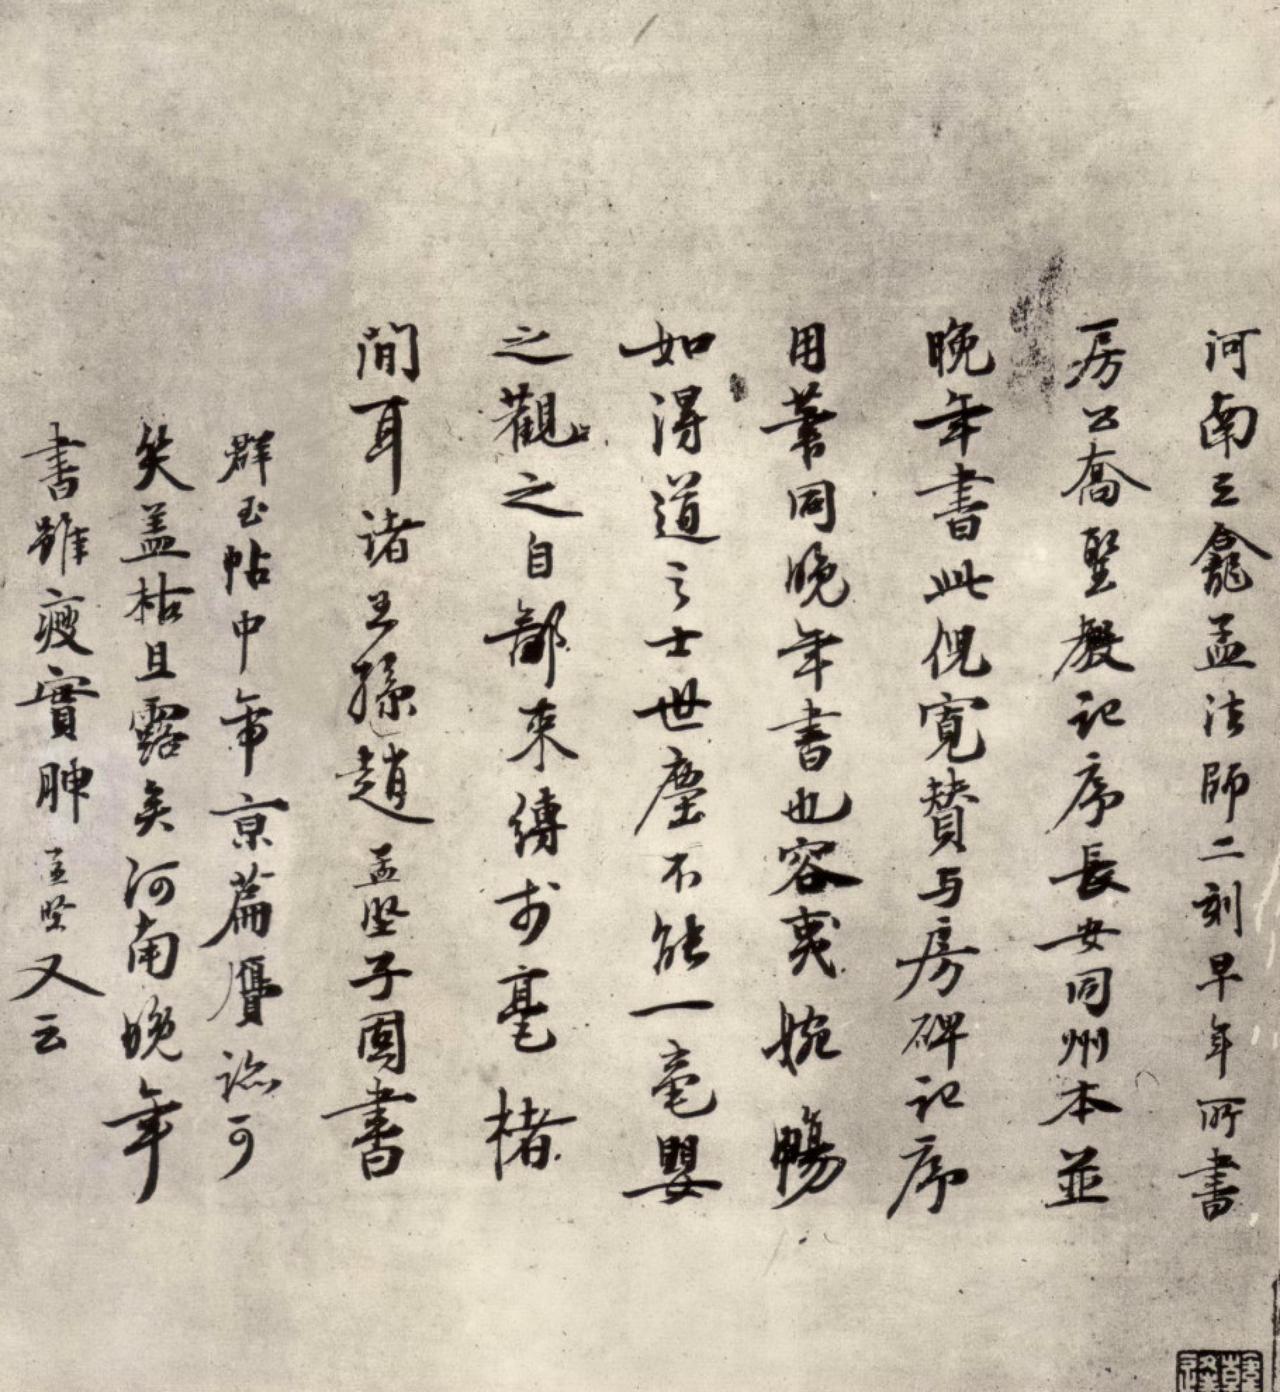 河南三龕孟法師二刻早年所書
房公喬聖教記序長安同州本並
晚年書此倪寬贊与房碑記序
用筆同晚年書也容夷婉暢
如得道之士世塵不能一毫嬰
之觀之自鄙束縛於毫楮
間耳諸王孫趙孟堅子固書
群玉帖中帝京篇贗迹可
笑盖枯且露矣河南晚年
書雖瘦實腴孟堅又云